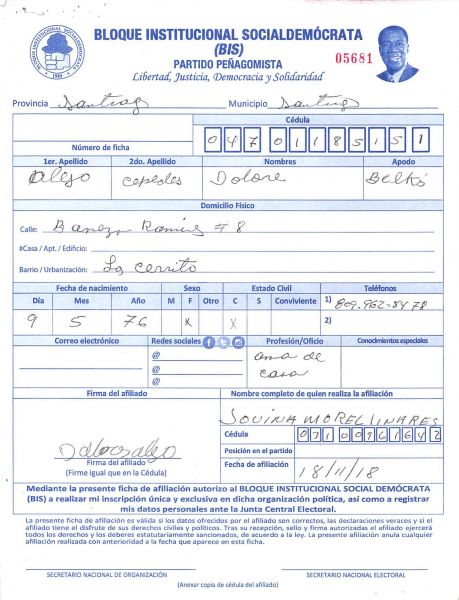 BLOQUE INSTITUCIONAL SOCIALDEMÓCRATA
(BIS)
05681
PARTIDO PEÑAGOMISTA
Libertad, Justicia, Democracia y Solidaridad
BLOQUE INSTITUCIONAL SOCIALDEMOCRATA
Provincia Santiag Municipio Santiag
Cédula
Número de ficha 04701185151
1er. Apellido 2do. Apellido Nombres Apodo
Alejo cepedes Dolore Belkó
Domicilio Físico
Calle: Ramires # 8
#Casa / Apt. / Edificio:
Barrio / Urbanización: La cerrito
Fecha de nacimiento Sexo Estado Civil Teléfonos
Día Mes Año M F Otro C S Conviviente 1) 809-962-8478
9 5 76 X X 2)
Correo electrónico Redes sociales Profesión/Oficio Conocimientos especiales
@
@
@
ama de
casa
Firma del afiliado Nombre completo de quien realiza la afiliación
JOVINA MOREL LINARES
Cédula 03100961642
Posición en el partido
Firma del afiliado
(Firme igual que en la Cédula)
Fecha de afiliación 18/11/18
Mediante la presente ficha de afiliación autorizo al BLOQUE INSTITUCIONAL SOCIAL DEMÓCRATA
(BIS) a realizar mi inscripción única y exclusiva en dicha organización política, así como a registrar
mis datos personales ante la Junta Central Electoral.
La presente ficha de afiliación es válida si los datos ofrecidos por el afiliado son correctos, las declaraciones veraces y si el
afiliado tiene el disfrute de sus derechos civiles y políticos. Tras su recepción, sello y firma autorizadas el afiliado ejercerá
todos los derechos y los deberes estatutariamente sancionados, de acuerdo a la ley. La presente afiliación anula cualquier
afiliación realizada con anterioridad a la fecha que aparece en esta ficha.
SECRETARIO NACIONAL DE ORGANIZACIÓN SECRETARIO NACIONAL ELECTORAL
(Anexar copia de cédula del afiliado)